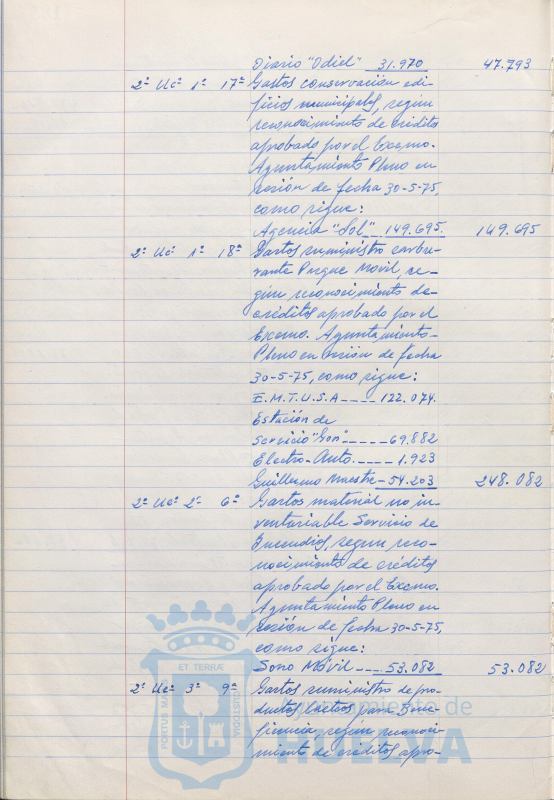 Diario "Odiel" 31.970 47.793
2º Uc 1º 17ª Gastos conservación edi-
ficios municipales, según
reconocimiento de créditos
aprobado por el Excmo.
Ayuntamiento Pleno en
sesión de fecha 30-5-75,
como sigue:
Agencia "Sol" 149.695. 149.695
2º Uc 1º 18ª Gastos suministro carbu-
rante Parque Movil, se-
gún reconocimiento de-
créditos aprobado por el
Excmo. Ayuntamiento-
Pleno en sesión de fecha
30-5-75, como sigue:
E.M.T.U.S.A ---- 122.074.
Estación de
Servicio "Gon" ----- 69.882
Electro-Auto. ---- 1.923
Guillermo Maestre - 54.203 248.082
2º Uc 2º 6ª Gastos material no in-
ventariable Servicio de
Incendios, según reco-
nocimiento de créditos
aprobado por el Excmo.
Ayuntamiento Pleno en
sesión de fecha 30-5-75,
como sigue:
Sono Móvil --- 53.082 53.082
2º Uc 3º 9ª Gastos suministro de pro-
ductos lácteos para Bene-
ficencia, según reconoci-
miento de créditos apro-
ET TERRÆ
PORTUS MARIS
CUSTODIA
Ayuntamiento de
HUELVA